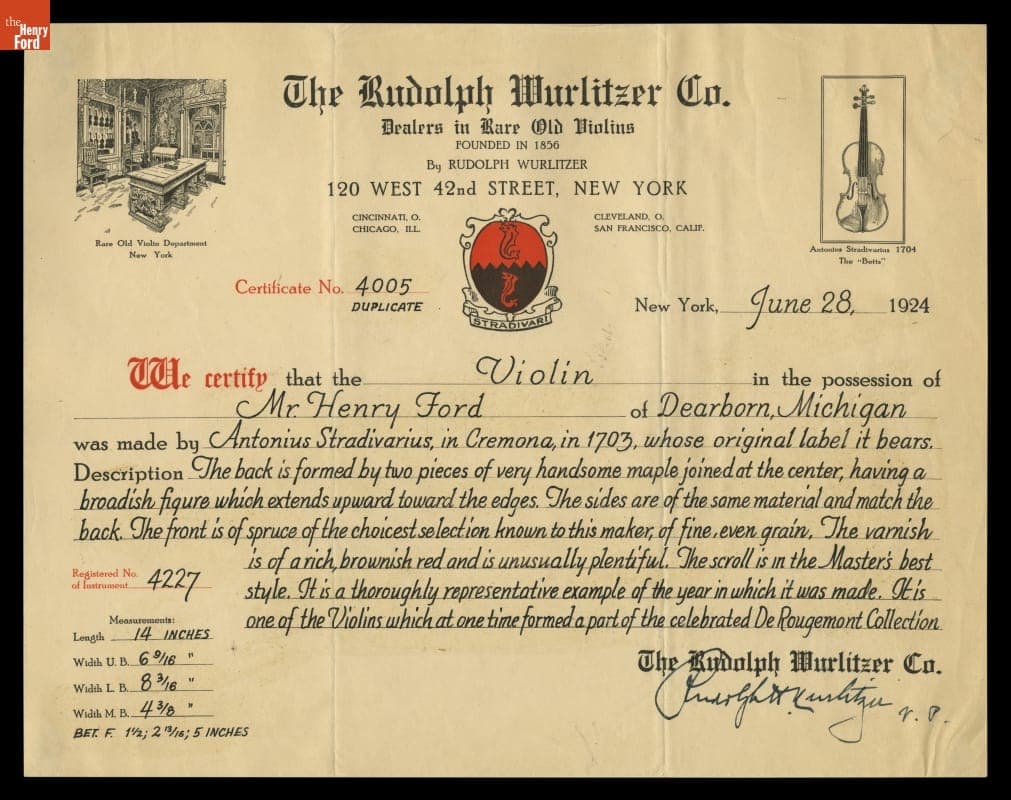 the
Henry
Ford
The Rudolph Wurlitzer Co.
Dealers in Rare Old Violins
FOUNDED IN 1856
By RUDOLPH WURLITZER
120 WEST 42nd STREET, NEW YORK
CINCINNATI, O.
CHICAGO, ILL.
CLEVELAND, O.
SAN FRANCISCO, CALIF.
Rare Old Violin Department
New York
Antonius Stradivarius 1704
The "Betts"
STRADIVARI
Certificate No. 4005
DUPLICATE
New York, June 28, 1924
We certify that the Violin in the possession of
Mr. Henry Ford of Dearborn, Michigan
was made by Antonius Stradivarius, in Cremona, in 1703, whose original label it bears.
Description The back is formed by two pieces of very handsome maple joined at the center, having a
broadish figure which extends upward toward the edges. The sides are of the same material and match the
back. The front is of spruce of the choicest selection known to this maker, of fine, even grain. The varnish
is of a rich, brownish red and is unusually plentiful. The scroll is in the Master's best
style. It is a thoroughly representative example of the year in which it was made. It is
one of the Violins which at one time formed a part of the celebrated De Rougemont Collection
Registered No.
of Instrument 4227
Measurements:
Length 14 INCHES
Width U. B. 6 9/16 "
Width L. B. 8 3/16 "
Width M. B. 4 3/8 "
BET. F. 1 1/2; 2 13/16; 5 INCHES
The Rudolph Wurlitzer Co.
Rudolph H. Wurlitzer V. P.